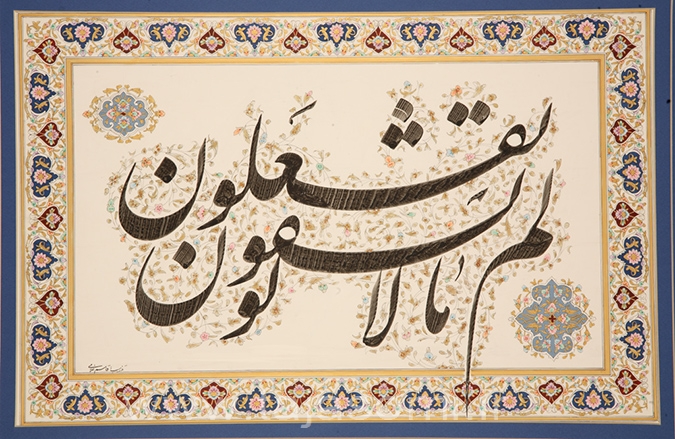 لم تقولون ما لا تفعلون